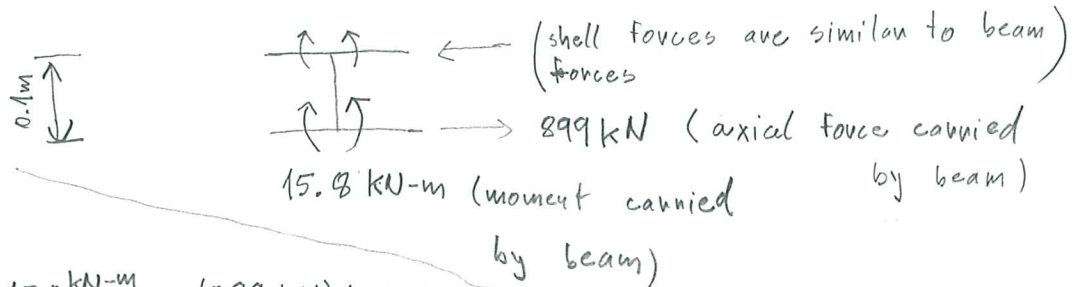 (shell forces are similar to beam forces)
0.1m
899 kN (axial force carried by beam)
15.8 kN-m (moment carried by beam)
kN-m